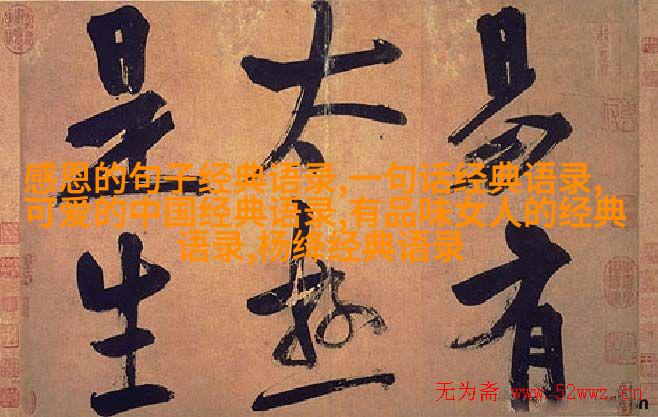 易有
太極
是生
感恩的句子经典语录,一句话经典语录,
可爱的中国经典语录,有品味女人的经典
语录,杨绛经典语录
无为斋 www.52wwz.cn